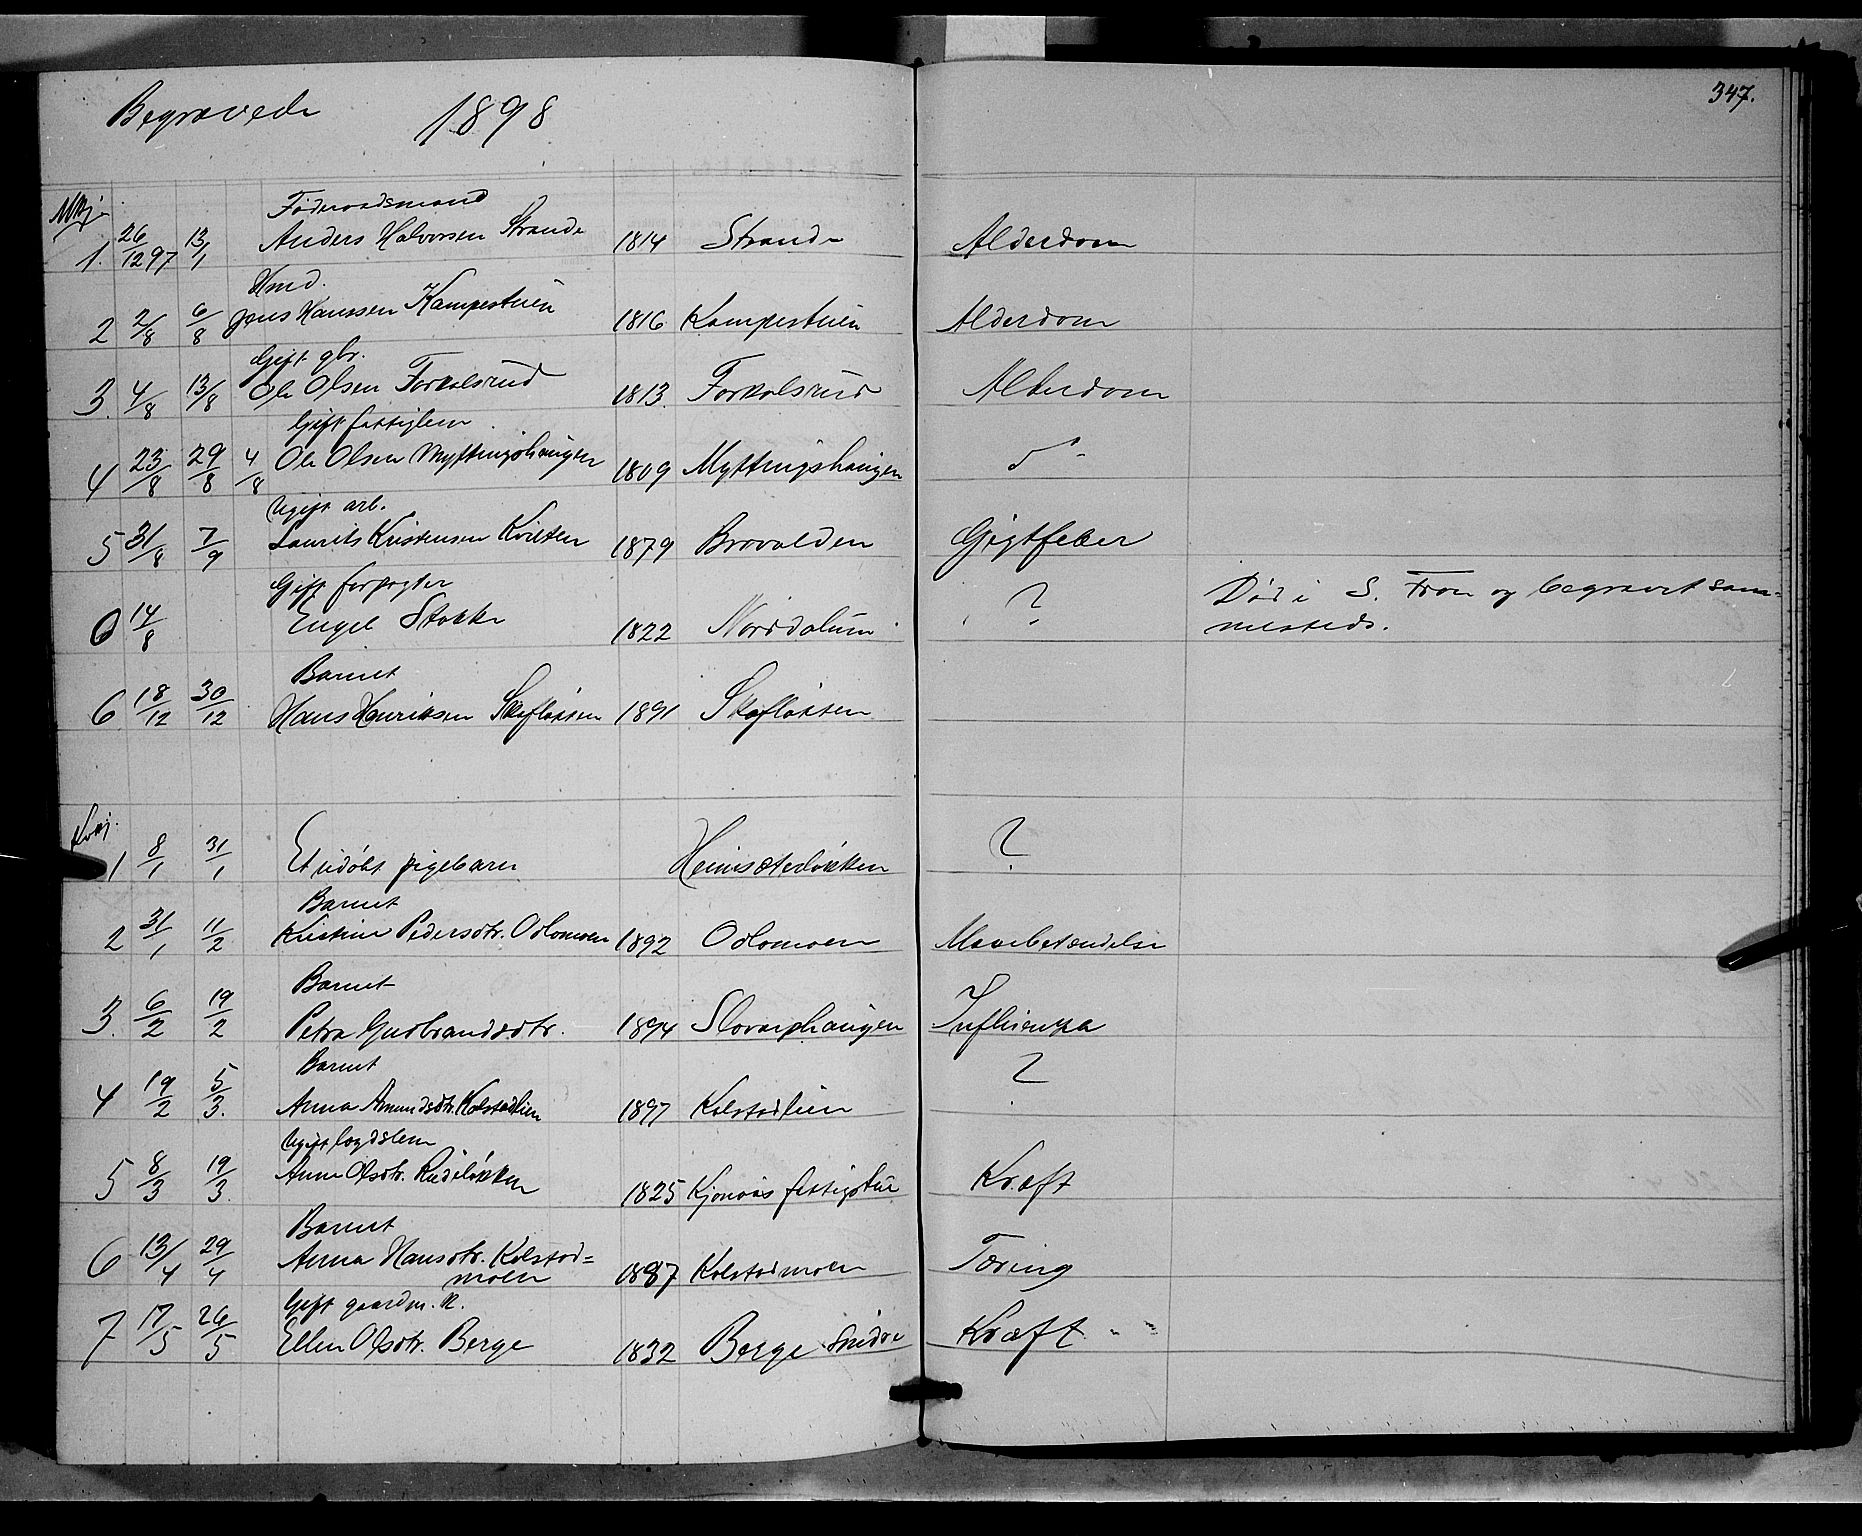 347.
Begravede 1898
Mkj.
Føderaadsmand
1. 26/12 97 13/1 Anders Halvorsen Strande 1814 Strande Alderdom
Hmd.
2 2/8 6/8 Jens Hanssen Kampestuen 1816 Kampestuen Alderdom
Gift gbr.
3. 4/8 13/8 Ole Olsen Forkalsrud 1813. Forkalsrud Alderdom
Gift fattiglem
4 23/8 29/8 4/8 Ole Olsen Myttingshaugen 1809 Myttingshaugen d-
Ugift arb.
5 31/8 7/9 Laurits Kristensen Kvilten 1879 Brovolden Gigtfeber
Gift forpagter
0 14/8 Engel Stokke 1822 Norddalum ? Død i S. Fron og begravet sam-
mesteds.
Barnet
6 18/12 30/12 Hans Henriksen Skafløkken 1891 Skafløkken
Kvkj.
1 8/1 31/1 Et udøbt pigebarn Heimsæterløkken ?
Barnet
2 31/1 11/2 Kristine Pedersdtr. Odlomoen 1892 Odlomoen Mavebetændelse
Barnet
3. 6/2 19/2 Petra Gudbrandsdtr. 1894 Slovarphaugen Influenza
Barnet
4 19/2 5/3. Anna Amundsdtr. Kolstadlien 1897 Kolstadlien ?
Ugift lægdslem
5 8/3 19/3. Anne Olsdtr. Rudiløkken 1825 Kjonaas fattigstue Kræft
Barnet
6 13/4 29/4 Anna Hansdtr. Kolstad=
moen 1887 Kolstadmoen Tæring
Gift gaardm. k.
7 17/5 26/5 Ellen Olsdtr. Berge 1832 Berge Søndre Kræft